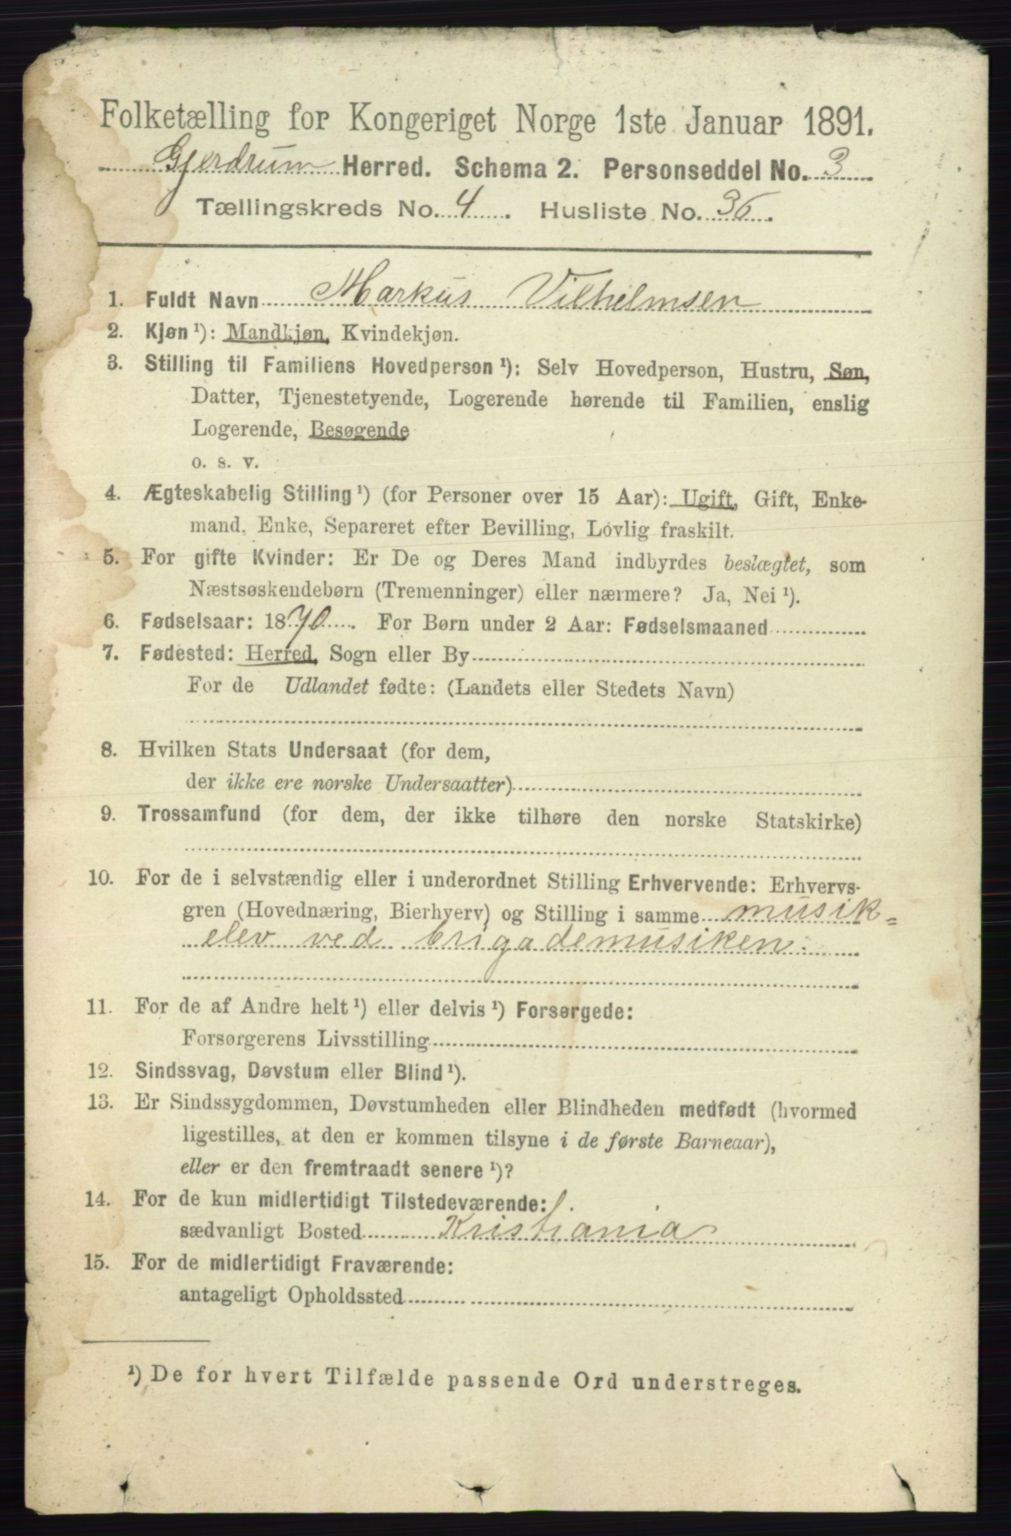 Folketælling for Kongeriget Norge 1ste Januar 1891.
Gjerdrum Herred. Schema 2. Personseddel No. 3
Tællingskreds No. 4. Husliste No. 36.
1. Fuldt Navn Markus Vilhelmsen
2. Kjøn ¹): Mandkjøn, Kvindekjøn.
3. Stilling til Familiens Hovedperson ¹): Selv Hovedperson, Hustru, Søn,
Datter, Tjenestetyende, Logerende hørende til Familien, enslig
Logerende, Besøgende
o. s. v.
4. Ægteskabelig Stilling ¹) (for Personer over 15 Aar): Ugift, Gift, Enke-
mand, Enke, Separeret efter Bevilling, Lovlig fraskilt.
5. For gifte Kvinder: Er De og Deres Mand indbyrdes beslægtet, som
Næstsøskendebørn (Tremenninger) eller nærmere? Ja, Nei ¹).
6. Fødselsaar: 1870. For Børn under 2 Aar: Fødselsmaaned
7. Fødested: Herred, Sogn eller By
For de Udlandet fødte: (Landets eller Stedets Navn)
8. Hvilken Stats Undersaat (for dem,
der ikke ere norske Undersaatter)
9. Trossamfund (for dem, der ikke tilhøre den norske Statskirke)
10. For de i selvstændig eller i underordnet Stilling Erhvervende: Erhvervs-
gren (Hovednæring, Bierhverv) og Stilling i samme musik=
elev ved brigademusiken.
11. For de af Andre helt ¹) eller delvis ¹) Forsørgede:
Forsørgerens Livsstilling
12. Sindssvag, Døvstum eller Blind ¹).
13. Er Sindssygdommen, Døvstumheden eller Blindheden medfødt (hvormed
ligestilles, at den er kommen tilsyne i de første Barneaar),
eller er den fremtraadt senere ¹)?
14. For de kun midlertidigt Tilstedeværende:
sædvanligt Bosted Kristiania
15. For de midlertidigt Fraværende:
antageligt Opholdssted
¹) De for hvert Tilfælde passende Ord understreges.